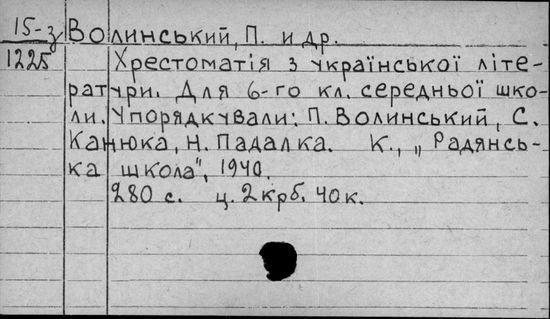 15-з Волинський, П. и др.
1225 Хрестоматія з української літе-
ратури. Для 6-го кл. середньої шко-
ли. Упорядкували: П. Волинський, С.
Канюка, Н. Падалка. К., „Радянсь-
ка школа", 1940.
280 с. ц. 2 крб. 40 к.